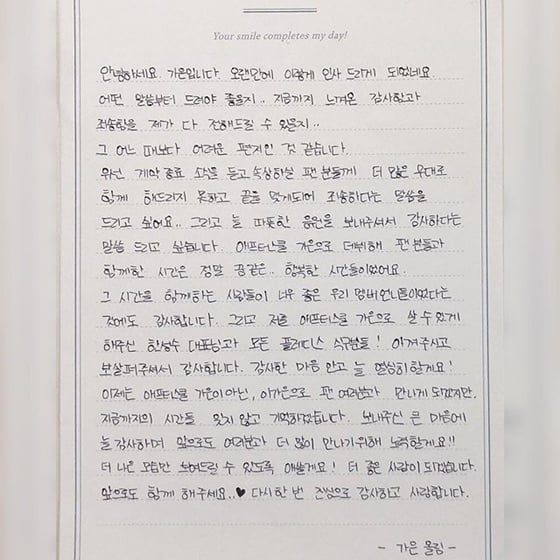 Your smile completes my day!
안녕하세요. 가은입니다. 오랜만에 이렇게 인사 드리게 되었네요
어떤 말씀부터 드려야 좋을지.. 지금까지 느껴온 감사함과
죄송함을 제가 다 전해드릴 수 있을지..
그 어느 때보다 어려운 편지인 것 같습니다.
우선 계약 종료 소식을 듣고 속상하실 팬 분들께 더 많은 무대로
함께 해드리지 못하고 끝을 맺게되어 죄송하다는 말씀을
드리고 싶어요.. 그리고 늘 따뜻한 응원을 보내주셔서 감사하다는
말씀 드리고 싶습니다. 애프터스쿨 가은으로 데뷔해 팬 분들과
함께한 시간은 정말 꿈같은.. 행복한 시간들이었어요.
그 시간을 함께하는 사람들이 너무 좋은 우리 멤버언니들이었다는
것에도 감사합니다. 그리고 저를 애프터스쿨 가은으로 살 수 있게
해주신 한성수 대표님과 모든 플레디스 식구분들! 아껴주시고
보살펴주셔서 감사합니다. 감사한 마음 안고 늘 열심히할게요!
이제는 애프터스쿨 가은이 아닌, 이가은으로 팬 여러분과 만나게 되겠지만,
지금까지의 시간들 잊지 않고 기억하겠습니다. 보내주신 큰 마음에
늘 감사하며 앞으로도 여러분과 더 많이 만나기위해 노력할게요!!
더 나은 모습만 보여드릴 수 있도록 애쓸게요! 더 좋은 사람이 되겠습니다.
앞으로도 함께 해주세요..♥ 다시 한 번 진심으로 감사하고 사랑합니다.
- 가은 올림 -